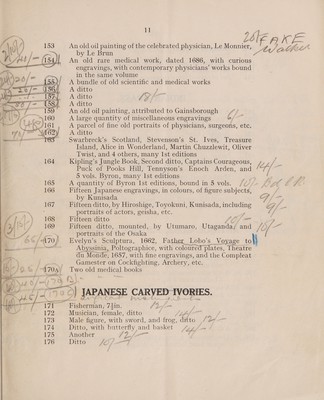 11
FAKE
153 An old oil painting of the celebrated physician, Le Monnier,
by Le Brun
154 An old rare medical work, dated 1686, with curious
engravings, with contemporary physicians' works bound
in the same volume
155 A bundle of old scientific and medical works
156 A ditto
157 A ditto
158 A ditto
159 An old oil painting, attributed to Gainsborough
160 A large quantity of miscellaneous engravings
161 A parcel of fine old portraits of physicians, surgeons, etc.
162 A ditto
163 Swarbreck's Scotland, Stevenson's St. Ives, Treasure
Island, Alice in Wonderland, Martin Chuzzlewit, Oliver
Twist, and 4 others, many 1st editions
164 Kipling's Jungle Book, Second ditto, Captains Courageous,
Puck of Pooks Hill, Tennyson's Enoch Arden, and
5 vols. Byron, many 1st editions
165 A quantity of Byron 1st editions, bound in 5 vols. 10/-
166 Fifteen Japanese engravings, in colours, of figure subjects,
by Kunisada 9/-
167 Fifteen ditto, by Hiroshige, Toyokuni, Kunisada, including
portraits of actors, geisha, etc. 9/-
168 Fifteen ditto 10/-
169 Fifteen ditto, mounted, by Utumaro, Utagada, and 10/-
portraits of the Osaka
170 Evelyn's Sculptura, 1662, Father Lobo's Voyage to
Abyssinia, Poltographice, with coloured plates, Theatre
du Monde, 1657, with fine engravings, and the Compleat
Gamester on Cockfighting, Archery, etc.
170A Two old medical books
JAPANESE CARVED IVORIES.
171 Fisherman, 7½in. 12/-
172 Musician, female, ditto 14/-
173 Male figure, with sword, and frog, ditto 12/-
174 Ditto, with butterfly and basket 14/-
175 Another 12/-
176 Ditto 10/-